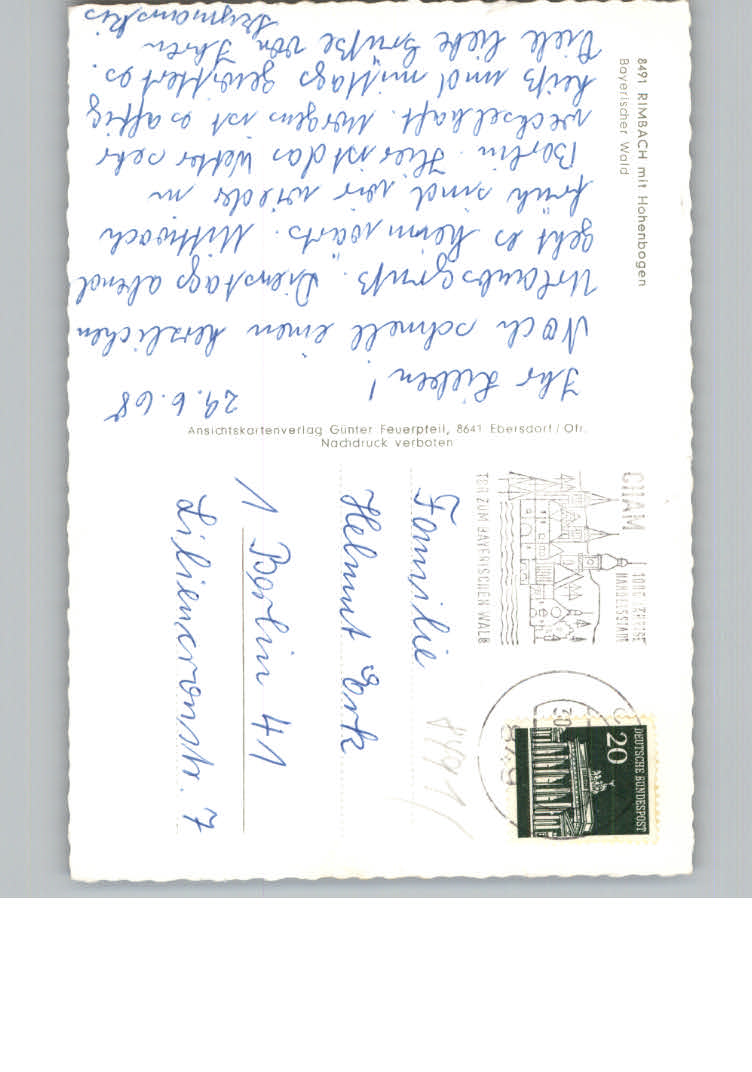 8491 RIMBACH mit Hohenbogen
Bayerischer Wald
29.6.68
Ihr Lieben!
Noch schnell einen herzlichen
Urlaubsgruß. Dienstags abend
geht es heimwärts. Mittwoch
früh sind wir wieder in
Berlin. Hier ist das Wetter sehr
wechselhaft. Morgens ist es affig
heiß und mittags gewittert es.
Viele liebe Grüße von Ihren
Szymanskis
Ansichtskartenverlag Günter Feuerpfeil, 8641 Ebersdorf/Ofr.
Nachdruck verboten
CHAM
HANDELSSTADT
TOR ZUM BAYERISCHEN WALD
DEUTSCHE BUNDESPOST
20
Familie
Helmut Erk
1 Berlin 41
Liliencronstr. 7
8491